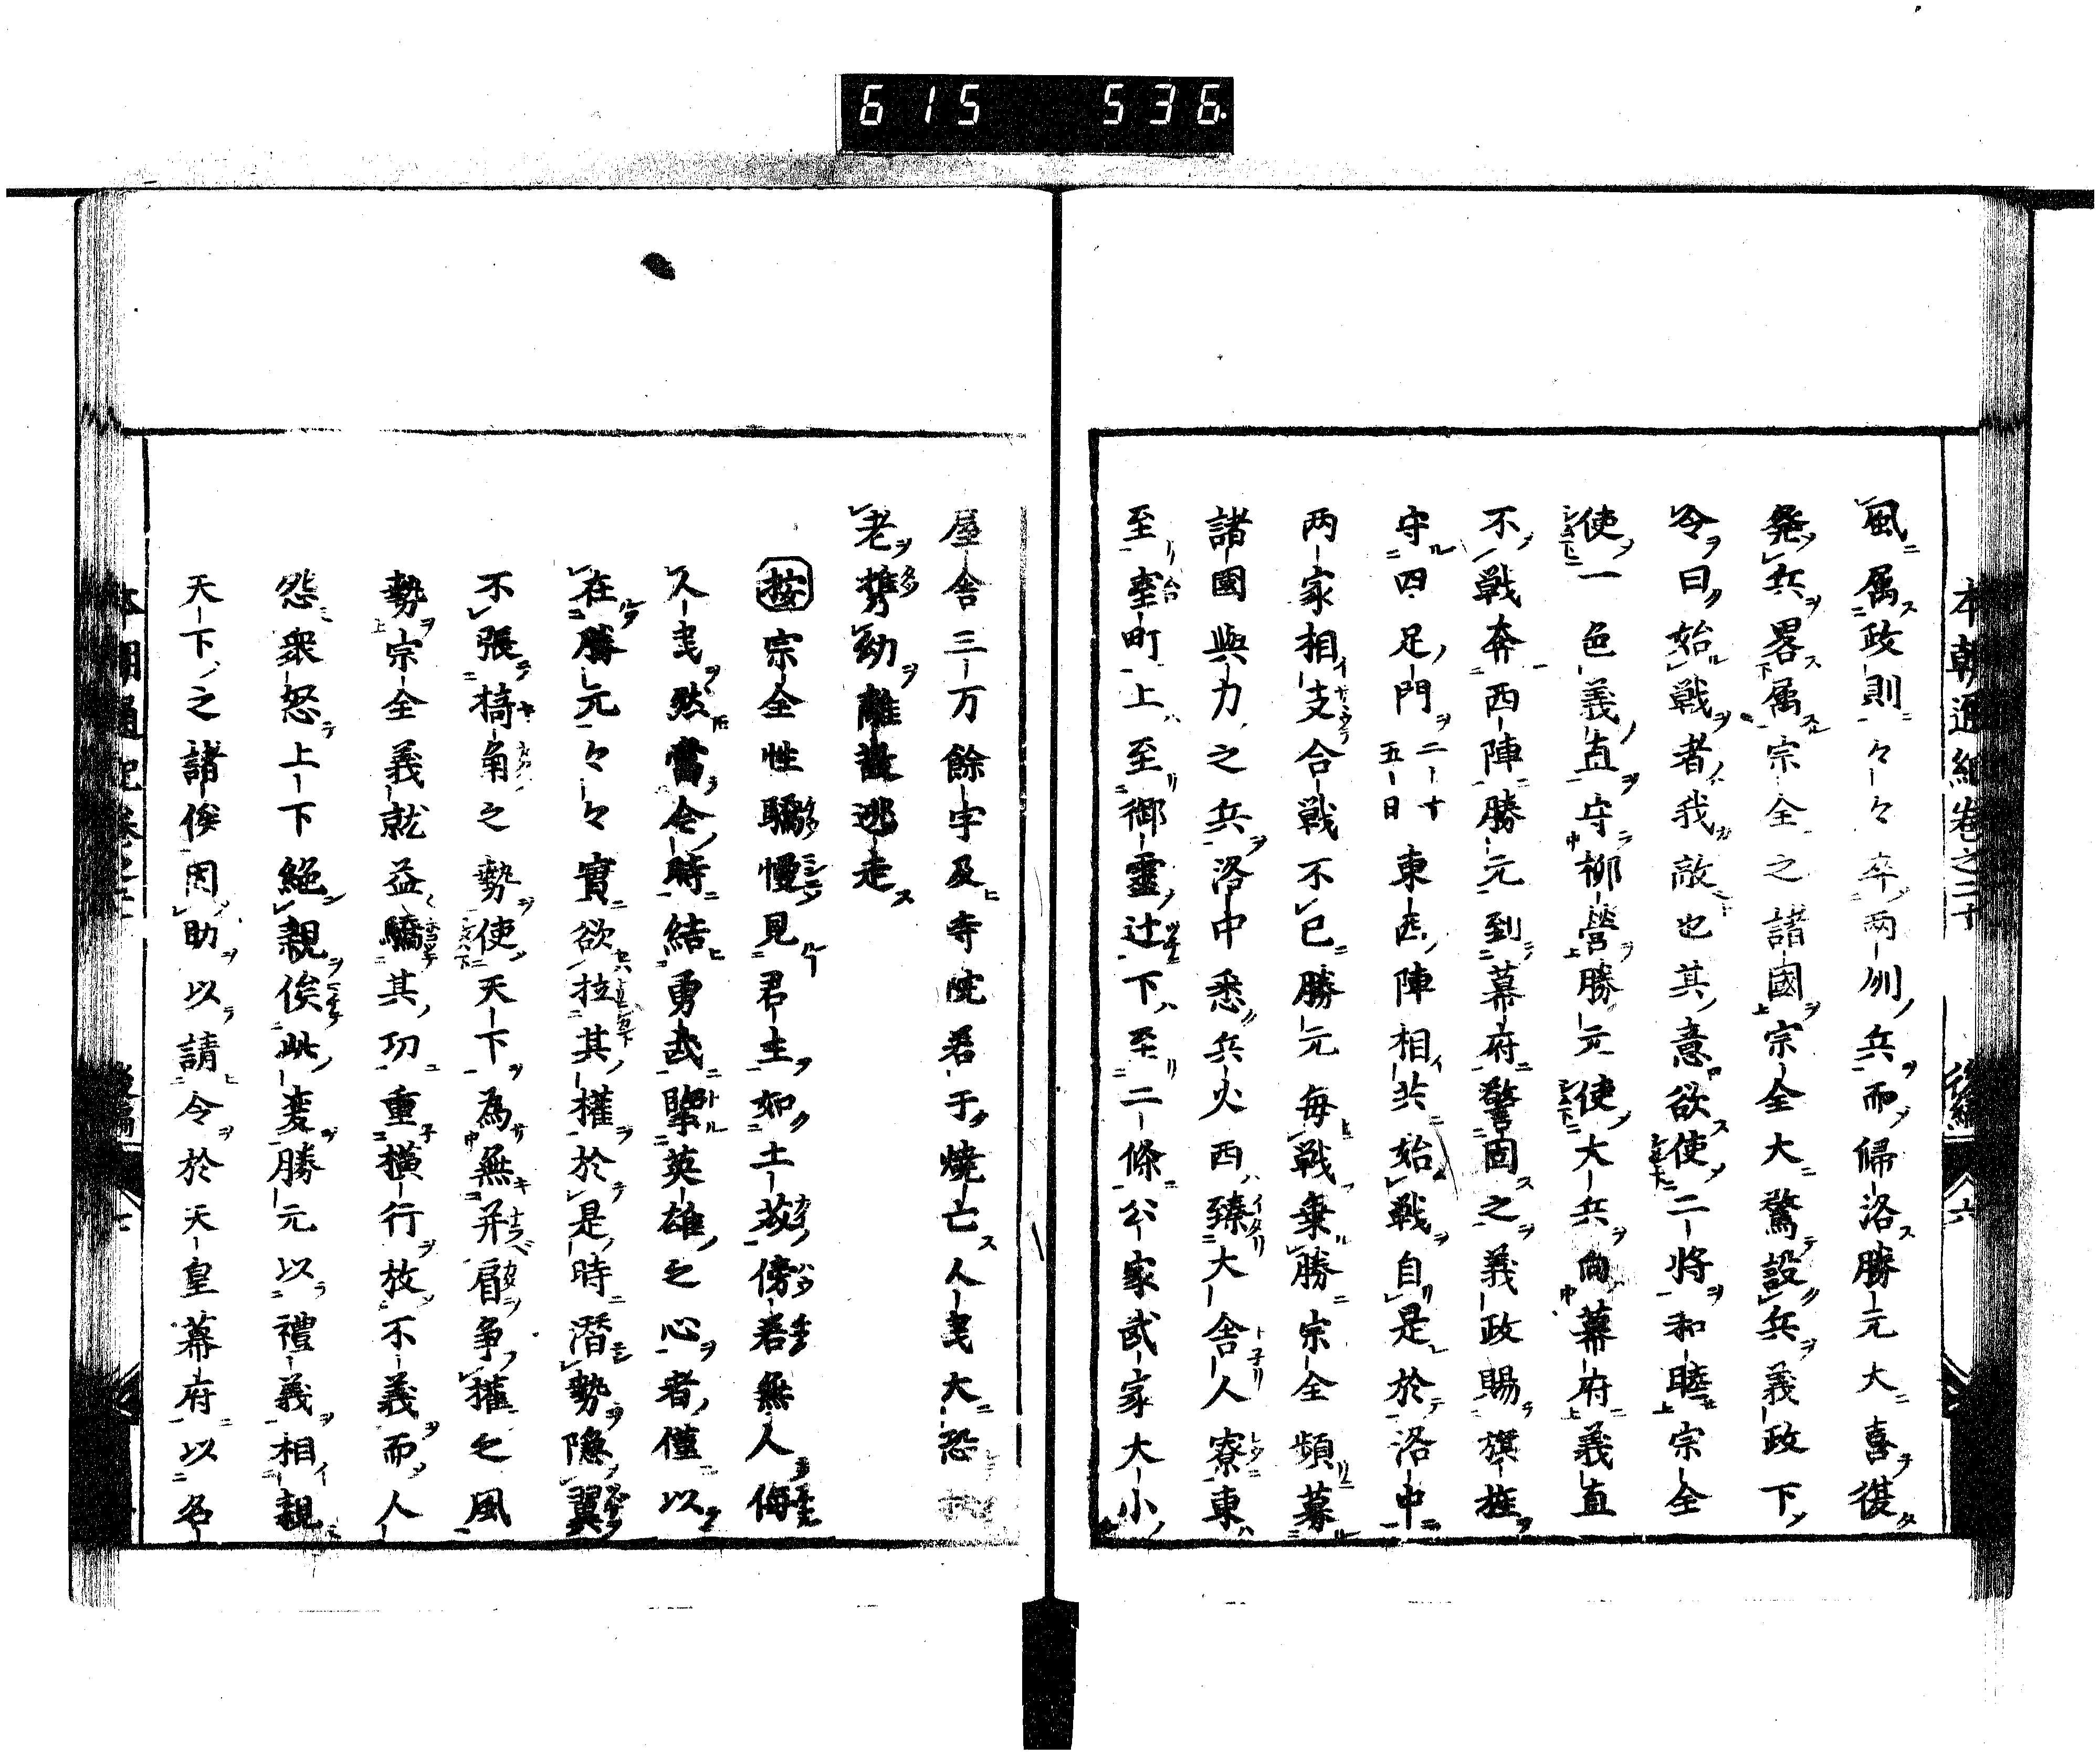 615 536
本朝通紀卷之二十 後編 六
風属政則々々卒两州兵而帰洛勝元大喜從
発兵畧属宗全之諸國宗全大驚設兵義政下
令曰始戦者我敵也其意欲使二将和睦宗全
使一色義直守柳営勝元使大兵向幕府義直
不戦奔西陣勝元到幕府警固之義政賜旗旌
守四足門 二十五日 東西陣相共始戦自是於洛中
两家相支合戦不已勝元毎戦乗勝宗全頻募
諸國與力之兵洛中悉兵火西臻大舎人寮東
至室町上至御靈辻下至二條公家武家大小
屋舎三万餘宇及寺院若干焼亡人民大恐
老携幼離散逃走
按宗全性驕慢見君主如土芥傍若無人侮
人民然當今時結勇武挙英雄之心者僅以
在勝元々々實欲拉其權於是時潛勢隠翼
不張掎角之勢使天下為無并肩争權之風
勢宗全義就益驕其功重横行放不義而人
怨衆怒上下絶親俟此変勝元以禮義相親
天下之諸侯因助以請令於天皇幕府以名
本朝通紀卷之二十 後編 七